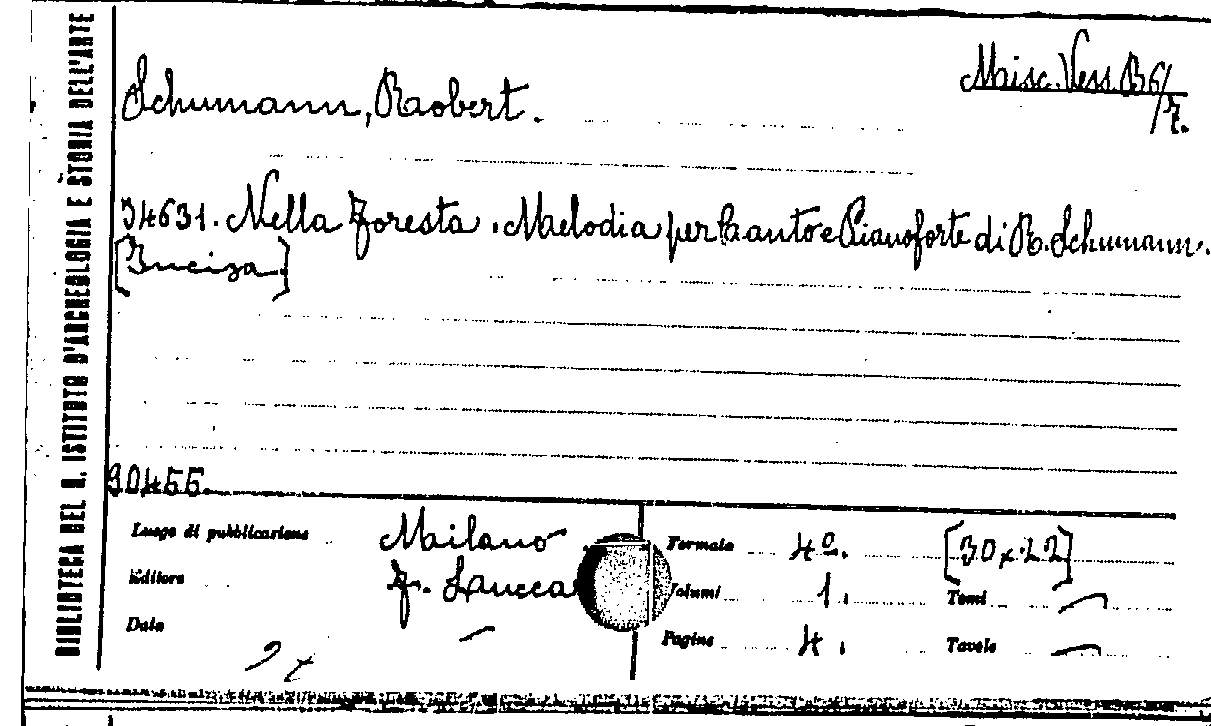 BIBLIOTECA DEL R. ISTITUTO D'ARCHEOLOGIA E STORIA DELL'ARTE
Misc. Vess. B 6/7.
Schumann, Robert.
34631. Nella Foresta. Melodia per Canto e Pianoforte di R. Schumann.
[Incisa]
30466.
Luogo di pubblicazione Milano
Editore F. Lucca
Data —
Formato 4º. [30x22]
Volumi 1. Tomi —
Pagine 4. Tavole —